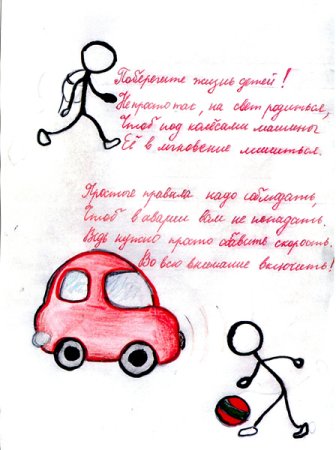 Поберегите жизнь детей!
Не просто так, на свет родиться,
Чтоб под колёсами машины
Её в мгновение лишиться.
Простые правила надо соблюдать,
Чтоб в аварии вам не попадать.
Ведь нужно просто сбавить скорость.
Во всю внимание включить!